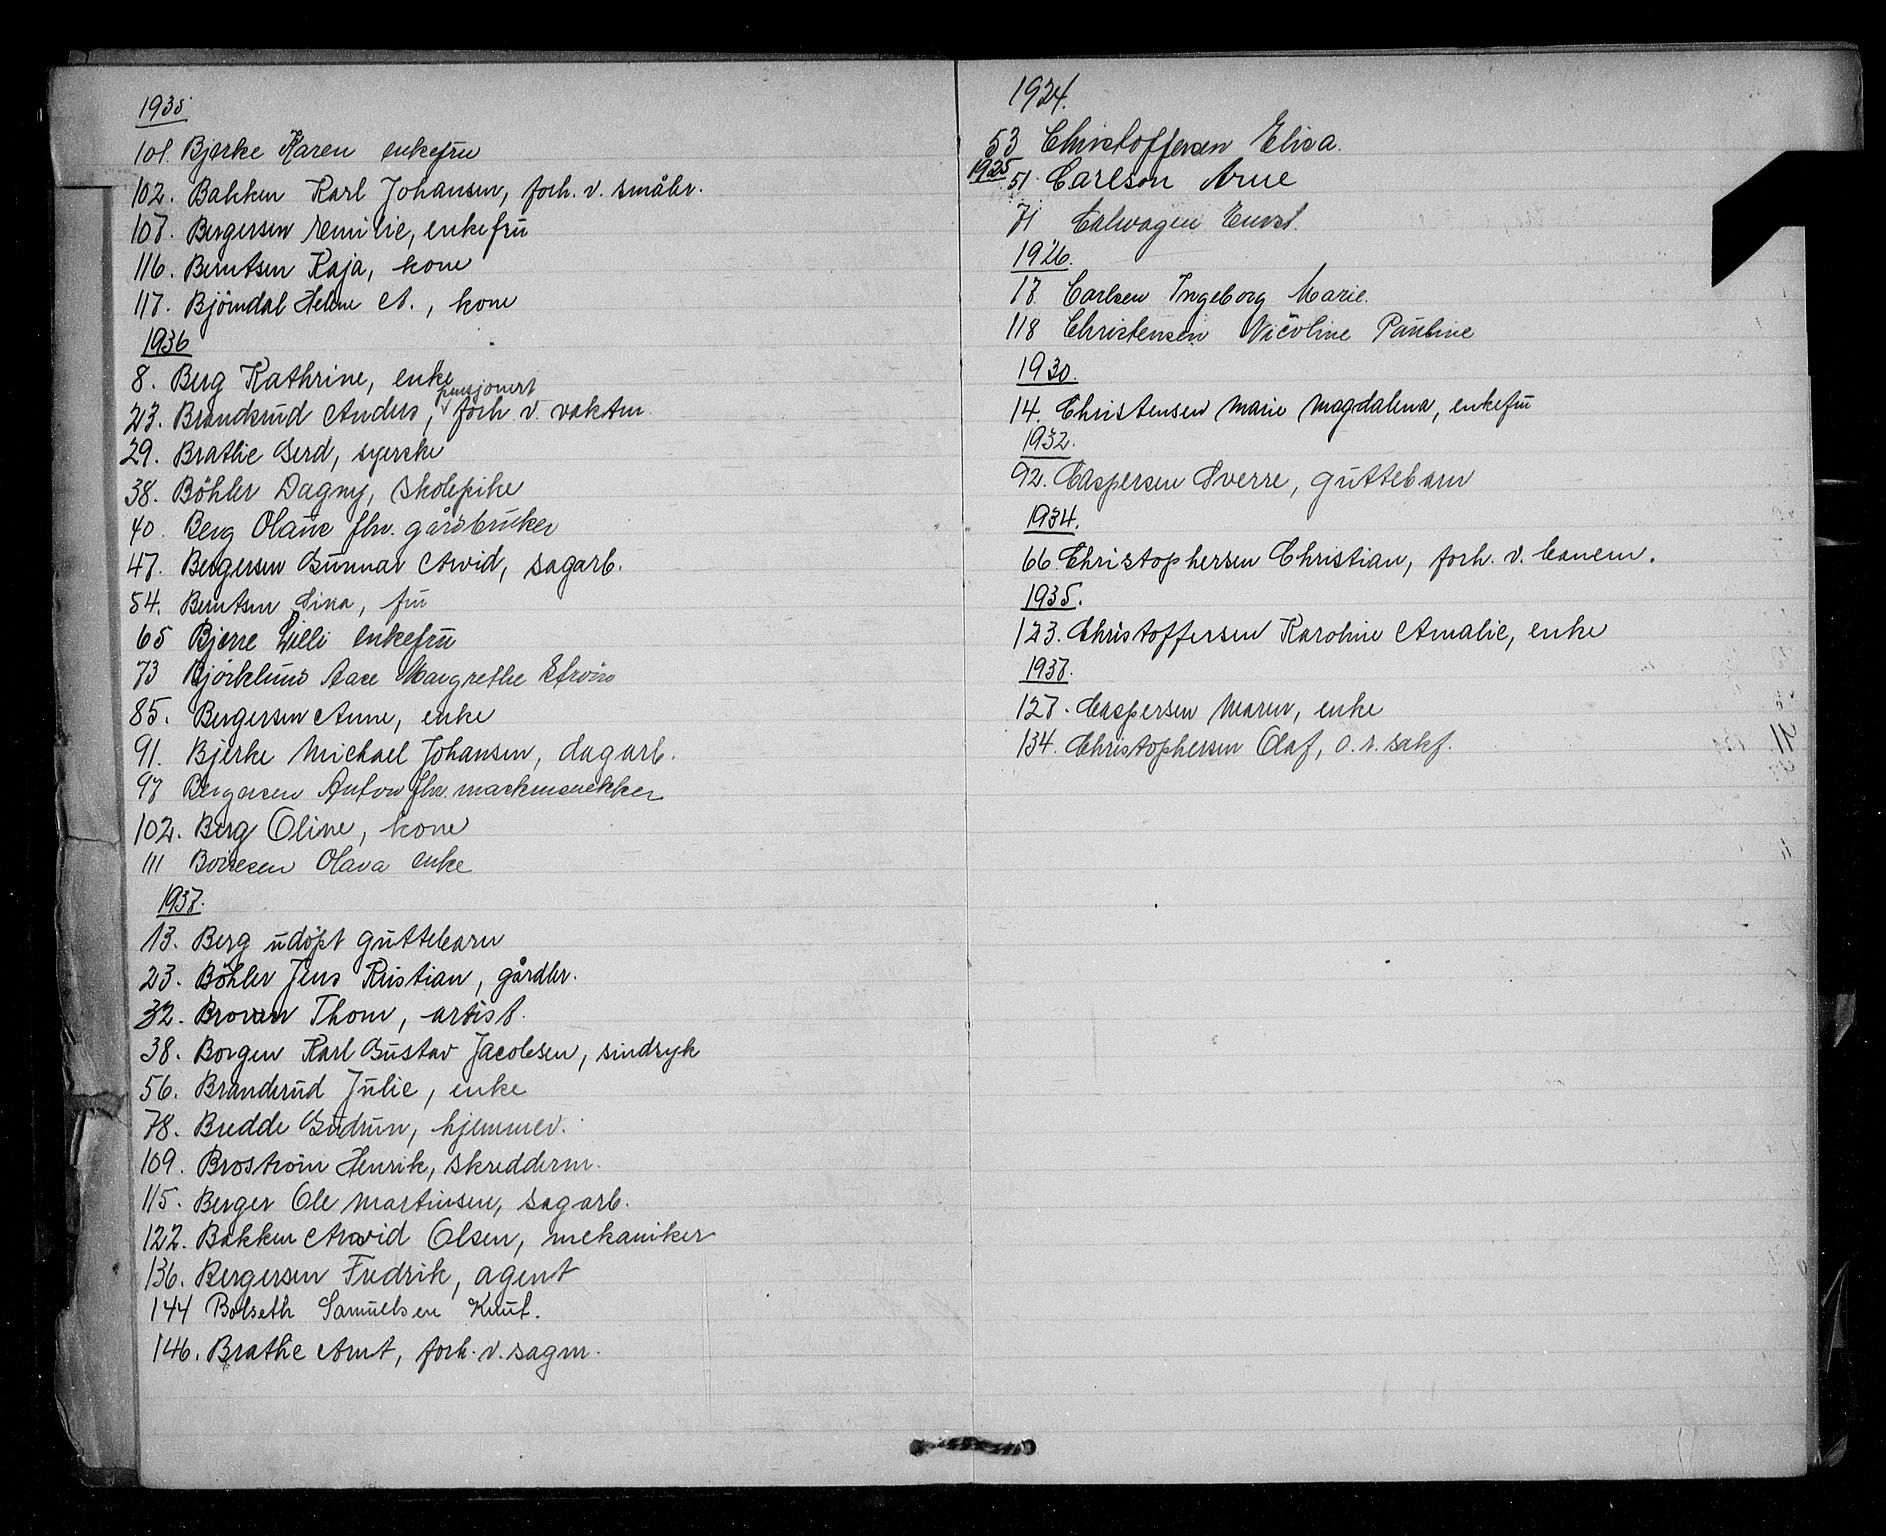 1935
101. Bjerke Karen enkefru
102. Bakken Karl Johansen, forh. v. småbr.
107. Bergersen Emilie, enkefru
116. Berntsen Kaja, kone
117. Björndal Helene A., kone
1936
8. Berg Kathrine, enke
pensjonert
23. Brandsrud Anders, forh. v. vaktm.
29. Brathe Gerd, syerske
38. Böhler Dagny, skolepike
40. Berg Olaus fhv. gårdbruker
47. Bergersen Gunnar Arvid, sagarb.
54. Berntsen Sina, fru
65 Bjerre Lilli enkefru
73 Björklund Aase Margrethe Ström
85. Bergersen Anne, enke
91. Bjerke Michael Johansen, dagarb.
97 Bergersen Anton fhv. maskinsnekker
102. Berg Oline, kone
111 Boresen Olava enke
1937.
13. Berg udöpt guttebarn
23. Böhler Jens Kristian, gårdbr.
32. Brovan Thom, artist.
38. Borgen Karl Gustav Jacobsen,
56. Branderud Julie, enke
78. Bredde Gudrun, hjemmev.
109. Broström Henrik, skredderm.
115. Berger Ole Martinsen, sagarb.
122. Bakken Arvid Olsen, mekaniker
136. Bergersen Fredrik, agent
144 Bolseth Samuelsen Knut.
146. Brathe Arnt, forh. v. sagm.
1924.
53 Christoffersen Elisa.
1925
51. Carlson Arne
71 Calwagen Ernst.
1926.
17. Carlsen Ingeborg Marie.
118 Christensen Nicoline Pauline
1930.
14. Christensen Marie Magdalena, enkefru
1932.
92. Caspersen Sverre, guttebarn
1934.
66 Christophersen Christian, forh. v.
1935.
123. Christoffersen Karoline Amalie, enke
1937.
127. Caspersen Maren, enke
134. Christophersen Olaf, o. r. sakf.